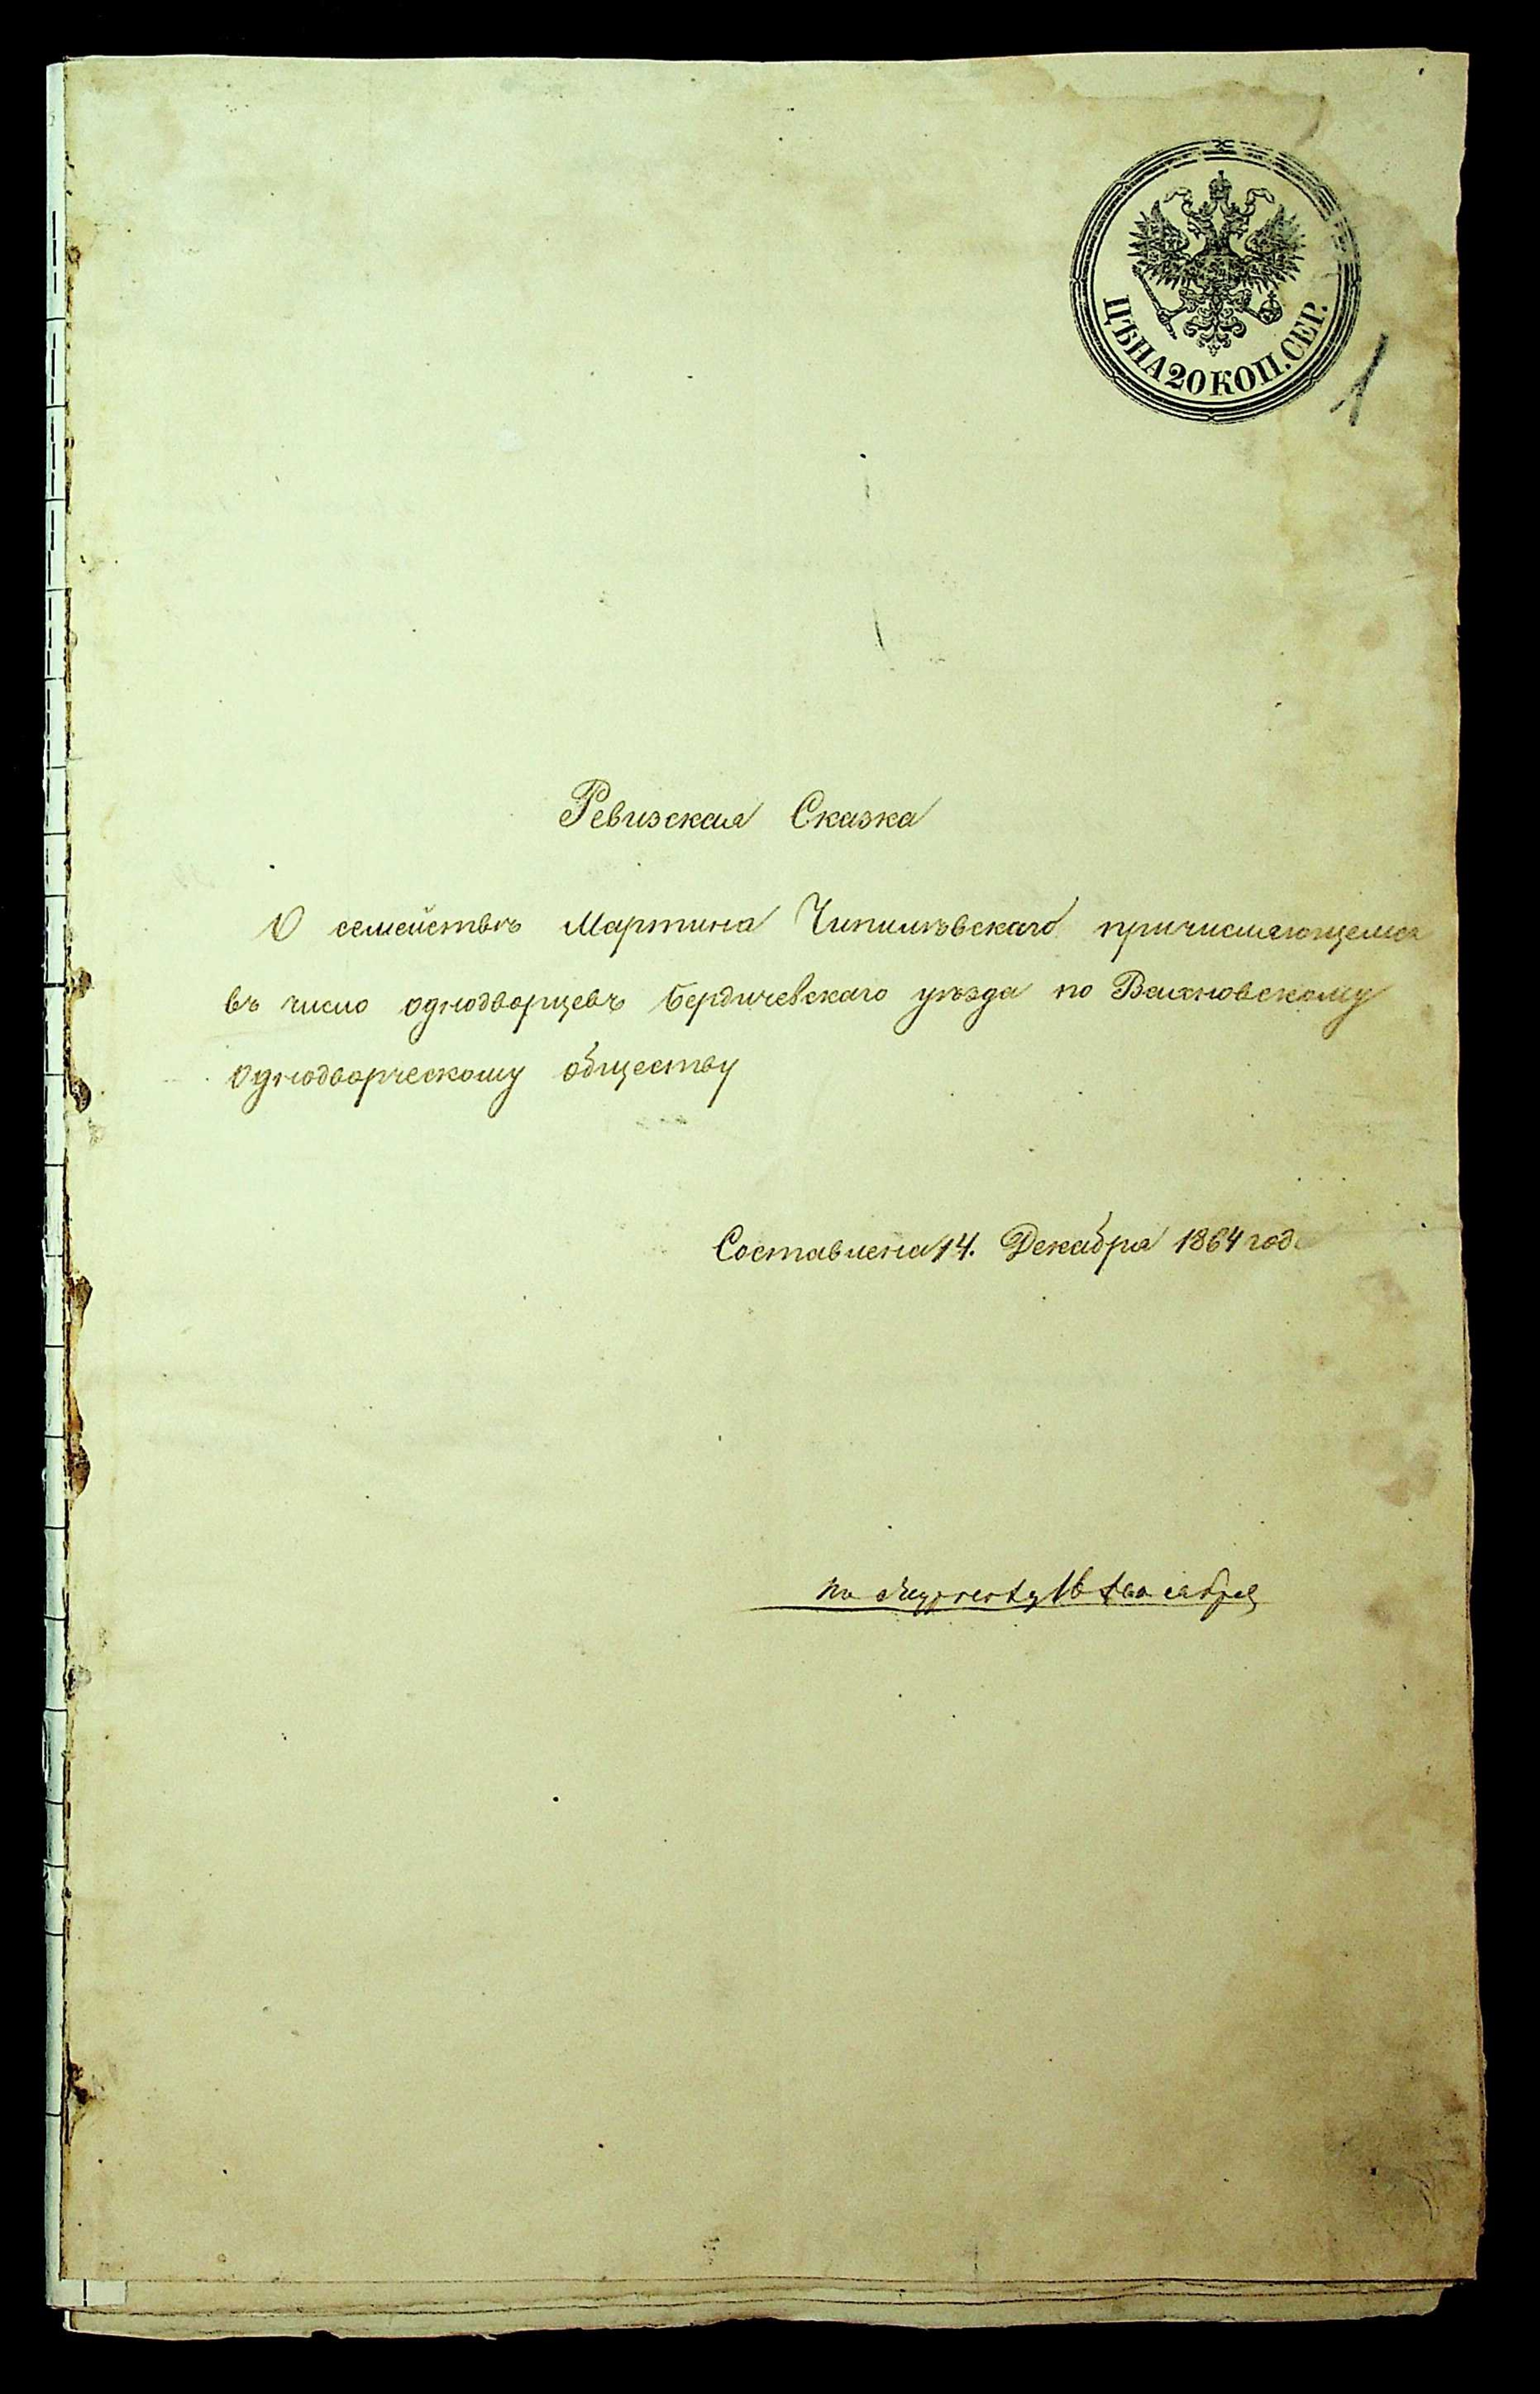 ЦѢНА 20 КОП. СЕР.
1
Ревизская Сказка
О семействѣ Мартина Чипилѣвскаго причисляющемся
въ число однодворцевъ Бердичевскаго уѣзда по Вахновскому
однодворческому обществу
Составлена 14. Декабря 1864 года
16 декабря